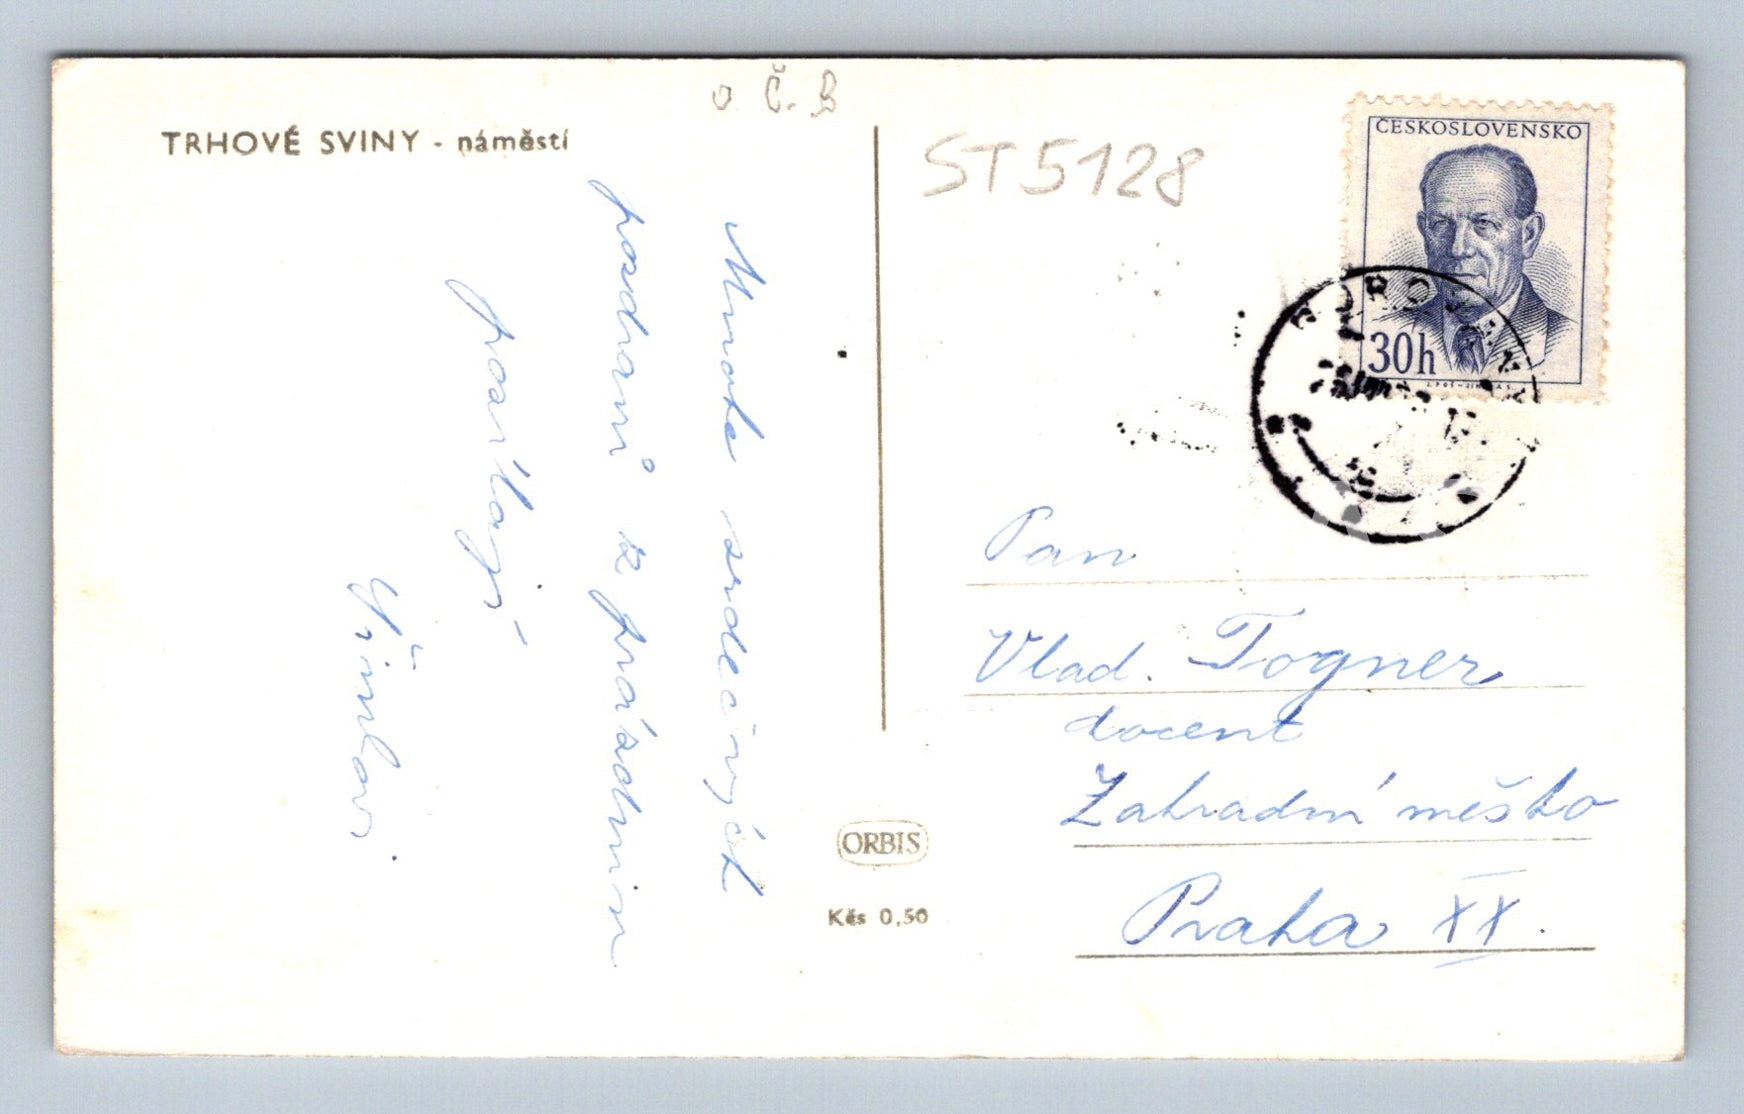 o Č. B
TRHOVÉ SVINY - náměstí
Mnoho srdečných
pozdravů z prázdnin
posílají
Šimkovi.
ORBIS
Kčs 0,50
ST5128
ČESKOSLOVENSKO
30h
Pan
Vlad. Togner
docent
Zahradní město
Praha XX.